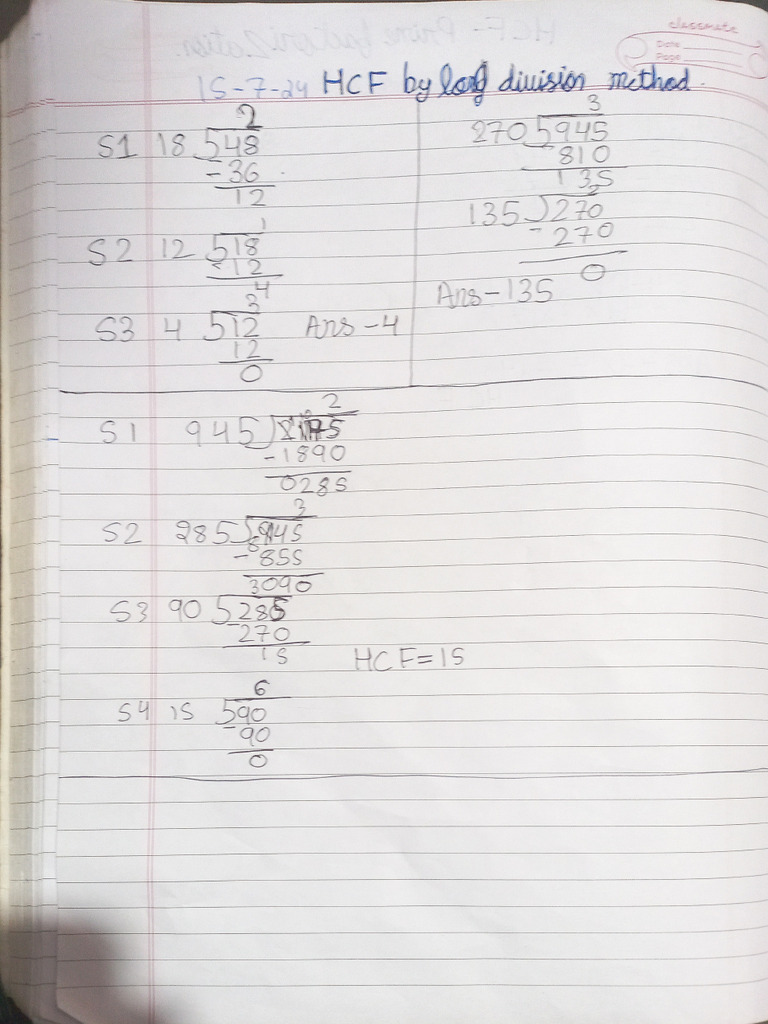 classmate
Date
Page
15-7-24 HCF by long division method.
2
S1 18 )48
-36
12
1
S2 12 )18
-12
4
3
S3 4 )12 Ans-4
12
0
3
270 )945
810
135
2
135 )270
-270
0
Ans-135
2
S1 945 )2175
-1890
0285
3
S2 285 )945
-855
3090
S3 90 )285
-270
15 HCF=15
6
S4 15 )90
-90
0